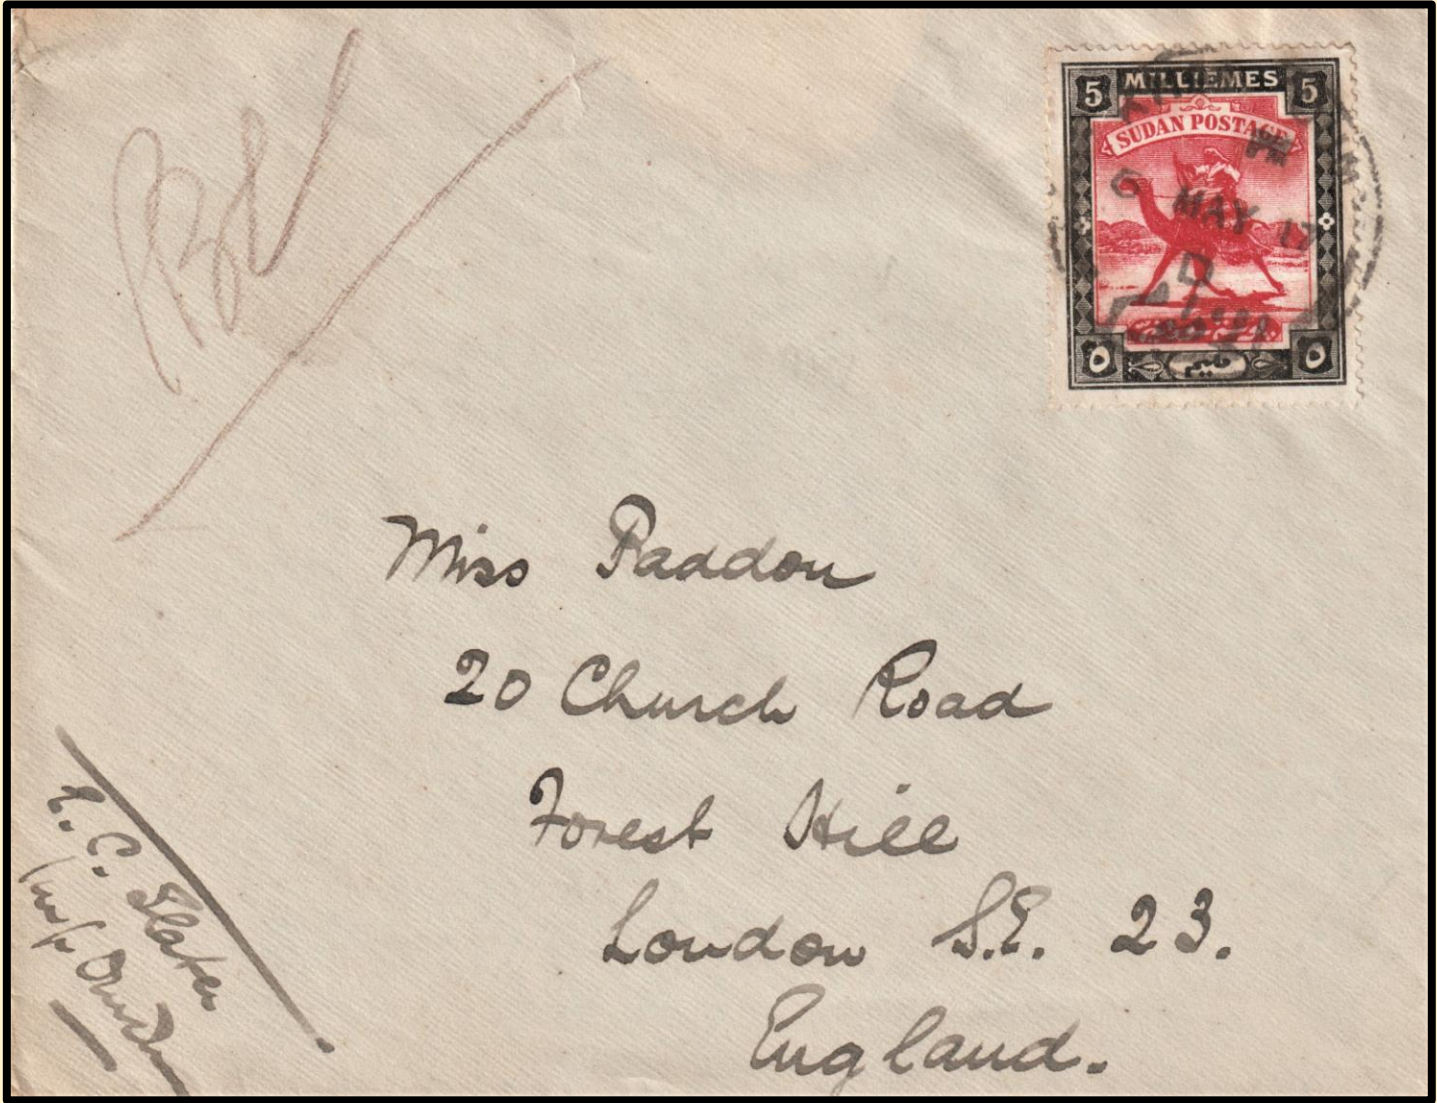 5 MILLIEMES 5
SUDAN POSTAGE
PM
MAY 17
D
٥ مليم ٥
Miss Paddon
20 Church Road
Forest Hill
London S.E. 23.
England.
E. C. Slater